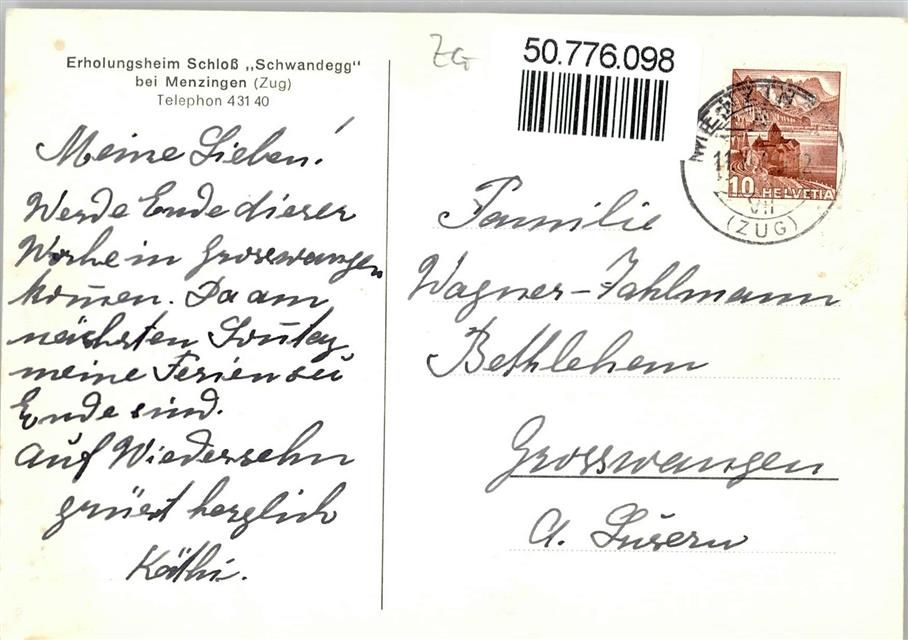 Erholungsheim Schloß „Schwandegg"
bei Menzingen (Zug)
Telephon 431 40
Meine Lieben!
Werde Ende dieser
Woche in Grosswangen
kom̄en. Da am
nächsten Soñtag
meine Ferien zu
Ende sind.
Auf Wiedersehn
grüsst herzlich
Käthi.
ZG
50.776.098
MENZINGEN
VII
(ZUG)
10 HELVETIA
Familie
Wagner-Fahlmann
Bethlehem
Grosswangen
Ct. Luzern